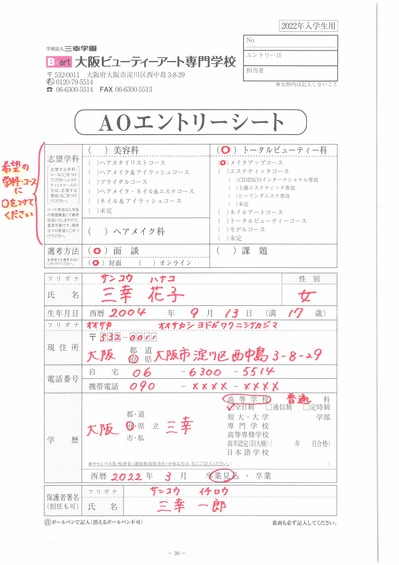 2022年入学生用
学校法人 三幸学園
B art 大阪ビューティーアート専門学校
〒532-0011 大阪府大阪市淀川区西中島3-8-29
0120-79-5514
☎ 06-6300-5514 FAX 06-6300-5513
No.
エントリー日
担当者
※太枠内は記入しないこと
AOエントリーシート
希望の学科・コースに○をつけてください
志望学科
( ) 美容科
( ) ヘアスタイリストコース
( ) ヘアメイク&アイラッシュコース
( ) ブライダルコース
( ) ヘアメイク・ネイル&エステコース
( ) ネイル&アイラッシュコース
( ) 未定
( ) ヘアメイク科
(○) トータルビューティー科
(○) メイクアップコース
( ) エステティックコース
( ) CIDESCOインターナショナル専攻
( ) 上級エステティック専攻
( ) ヒーリングエステ専攻
( ) 未定
( ) ネイルアートコース
( ) トータルビューティーコース
( ) モデルコース
( ) 未定
選考方法
(○) 面 談
(○) 対面 ( ) オンライン
( ) 課 題
フリガナ サンコウ ハナコ
氏 名 三幸 花子
性 別 女
生年月日 西暦 2004 年 9 月 13 日 (満 17 歳)
フリガナ オオサカ オオサカシ ヨドガワクニシナカジマ
現住所 〒532-0011
大阪 都 道 府 県 大阪市淀川区西中島3-8-29
電話番号 自 宅 06 - 6300 - 5514
携帯電話 090 - ×××× - ××××
学 歴
大阪 都・道 府・県 市・私 立 三幸
高 等 学 校 普通 科
全日制 通信制 定時制
短大・大学 学部
専 門 学 校
高等専修学校
高卒認定(旧大検) 年 月合格)
日本語学校
西暦 2022 年 3 月 卒業見込・卒業
保護者署名
(担任も可)
フリガナ サンコウ イチロウ
氏 名 三幸 一郎
ボールペンで記入(消えるボールペン不可)
裏面も必ず記入してください。
- 30 -